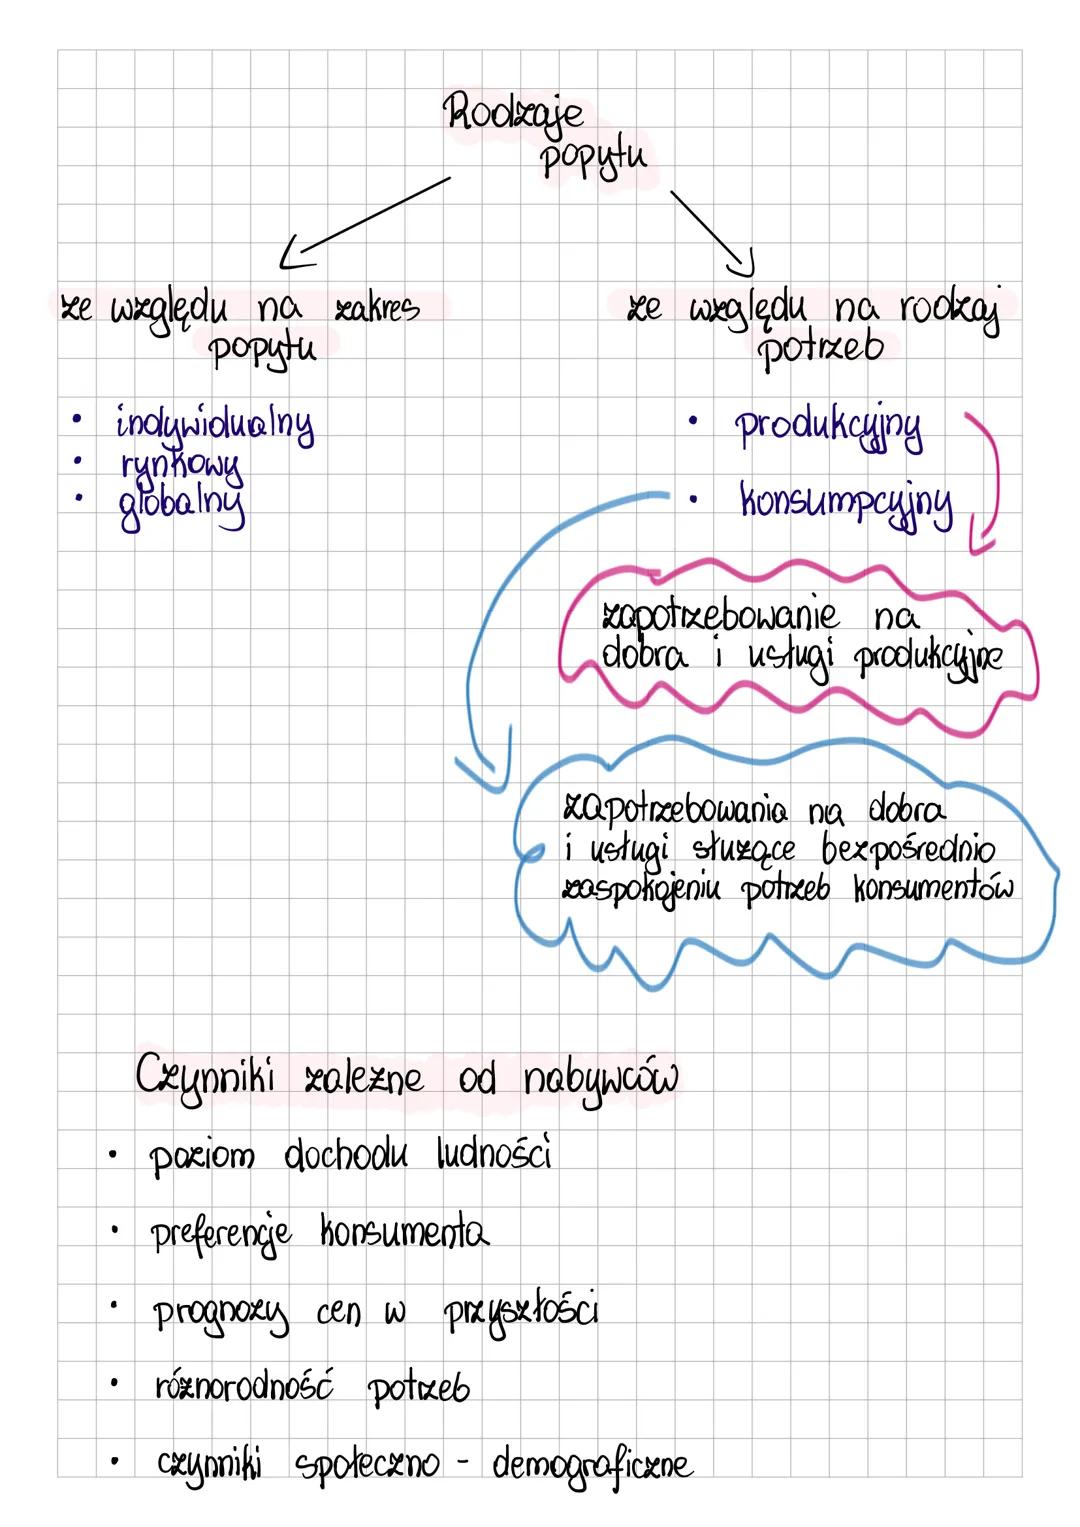 Rodzaje
popytu
ze względu na zakres
popytu
• indywidualny
• rynkowy
• globalny
ze względu na rodzaj
potrzeb
• produkcyjny
• konsumpcyjny
zapotrzebowanie na
dobra i usługi produkcyjne
zapotrzebowania na dobra
i usługi służące bezpośrednio
zaspokojeniu potrzeb konsumentów
Czynniki zależne od nabywców
• poziom dochodu ludności
• preferencje konsumenta
• prognozy cen w przyszłości
• różnorodność potrzeb
• czynniki społeczno - demograficzne